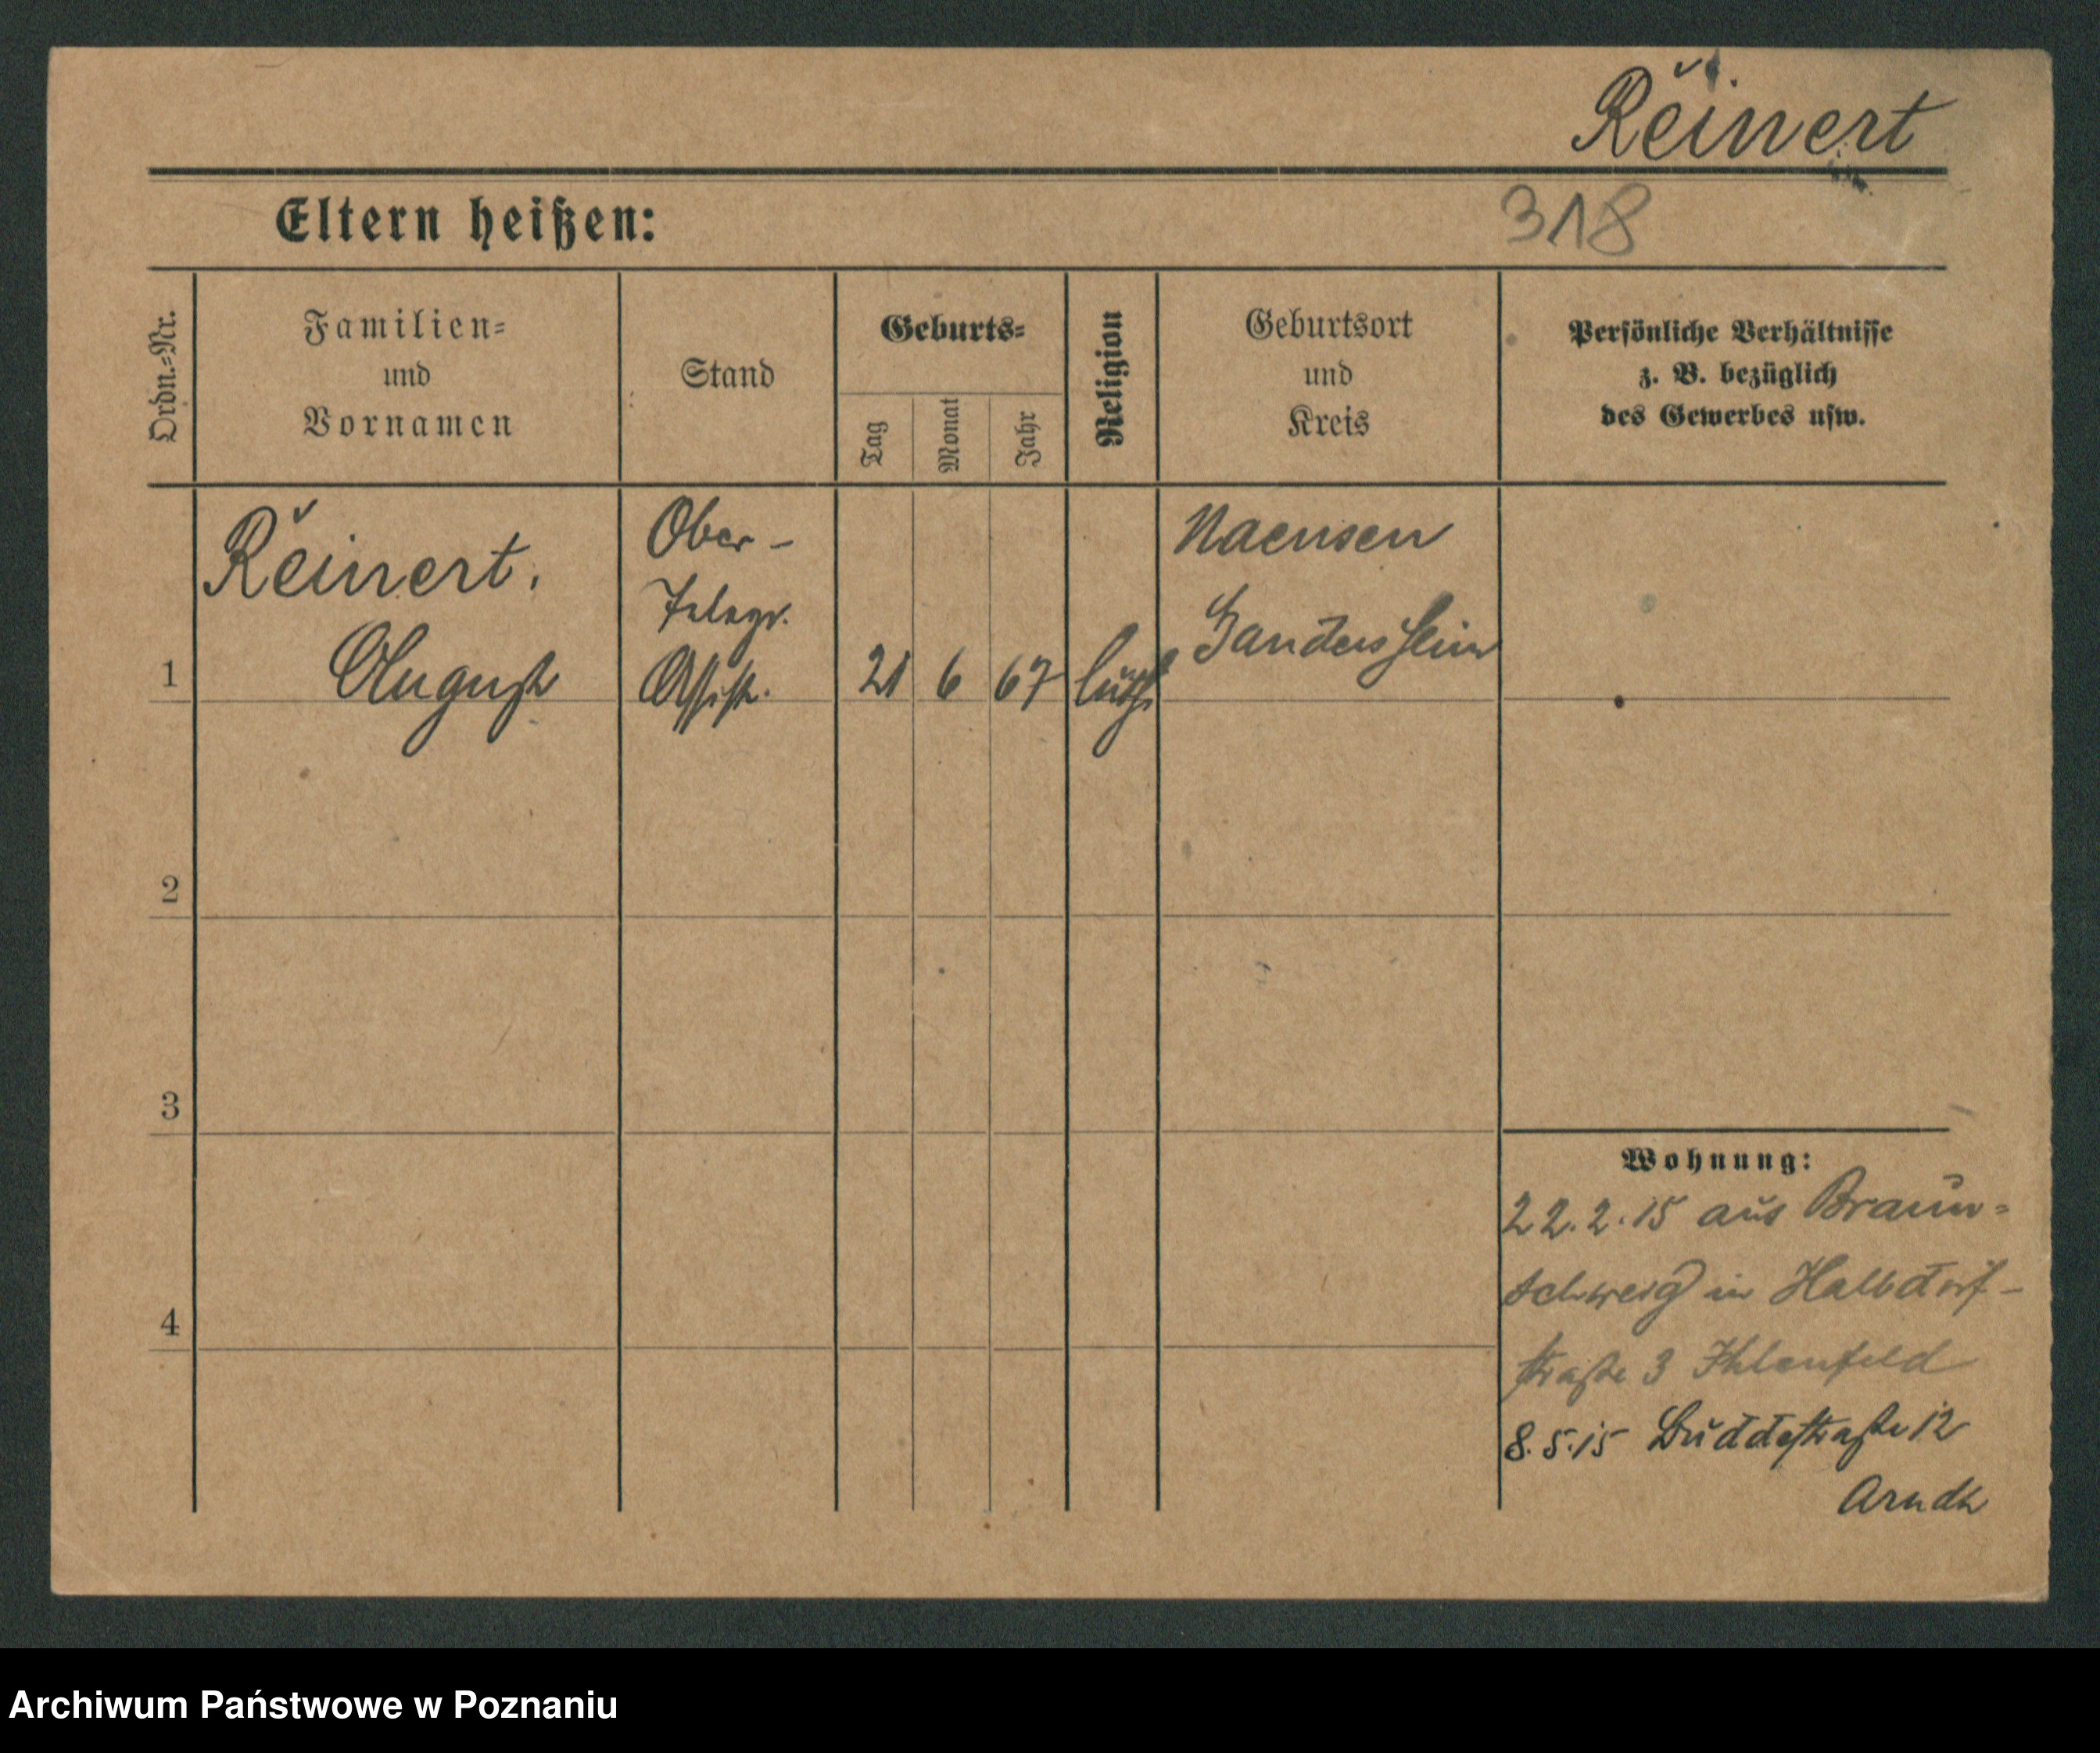 Reinert
Eltern heißen:
318
Ordn.-Nr.
Familien-
und
Vornamen
Stand
Geburts-
Tag
Monat
Jahr
Religion
Geburtsort
und
Kreis
Persönliche Verhältnisse
z. B. bezüglich
des Gewerbes usw.
1
Reinert.
August
Ober-
Telegr.
Assist.
21
6
67
luth.
Naensen
Gandersheim
2
3
4
Wohnung:
22.2.15 aus Braun-
schweig in Halbdorf-
straße 3 Ihlenfeld
8.5.15 Buddestraße 12
Arndt
Archiwum Państwowe w Poznaniu